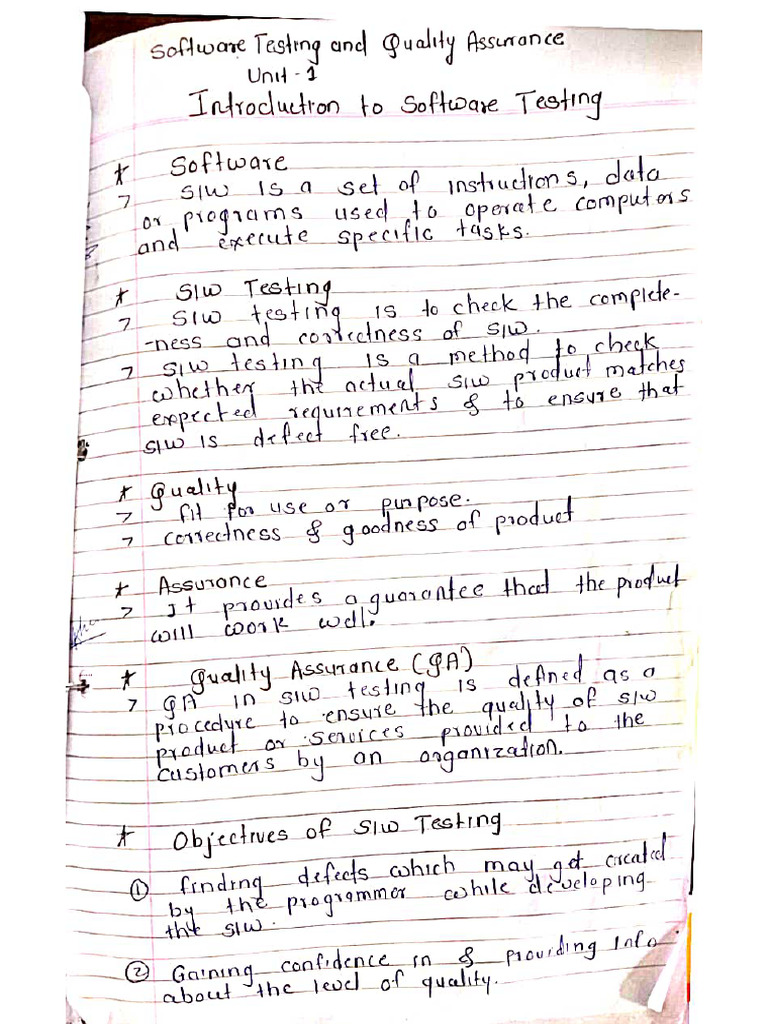 Software Testing and Quality Assurance
Unit - 1
Introduction to Software Testing
* Software
> S/W is a set of instructions, data
or programs used to operate computors
and execute specific tasks.
* S/W Testing
> S/W testing is to check the complete-
-ness and correctness of S/W.
> S/W testing is a method to check
whether the actual S/W product matches
expected requirements & to ensure that
S/W is defect free.
* Quality
> fit for use or purpose.
> correctness & goodness of product
* Assurance
> It provides a guarantee that the product
will work well.
* Quality Assurance (QA)
> QA in S/W testing is defined as a
procedure to ensure the quality of S/W
product or services provided to the
customers by an organization.
* Objectives of S/W Testing
① finding defects which may get created
by the programmer while developing
the S/W.
② Gaining confidence in & providing info
about the level of quality.